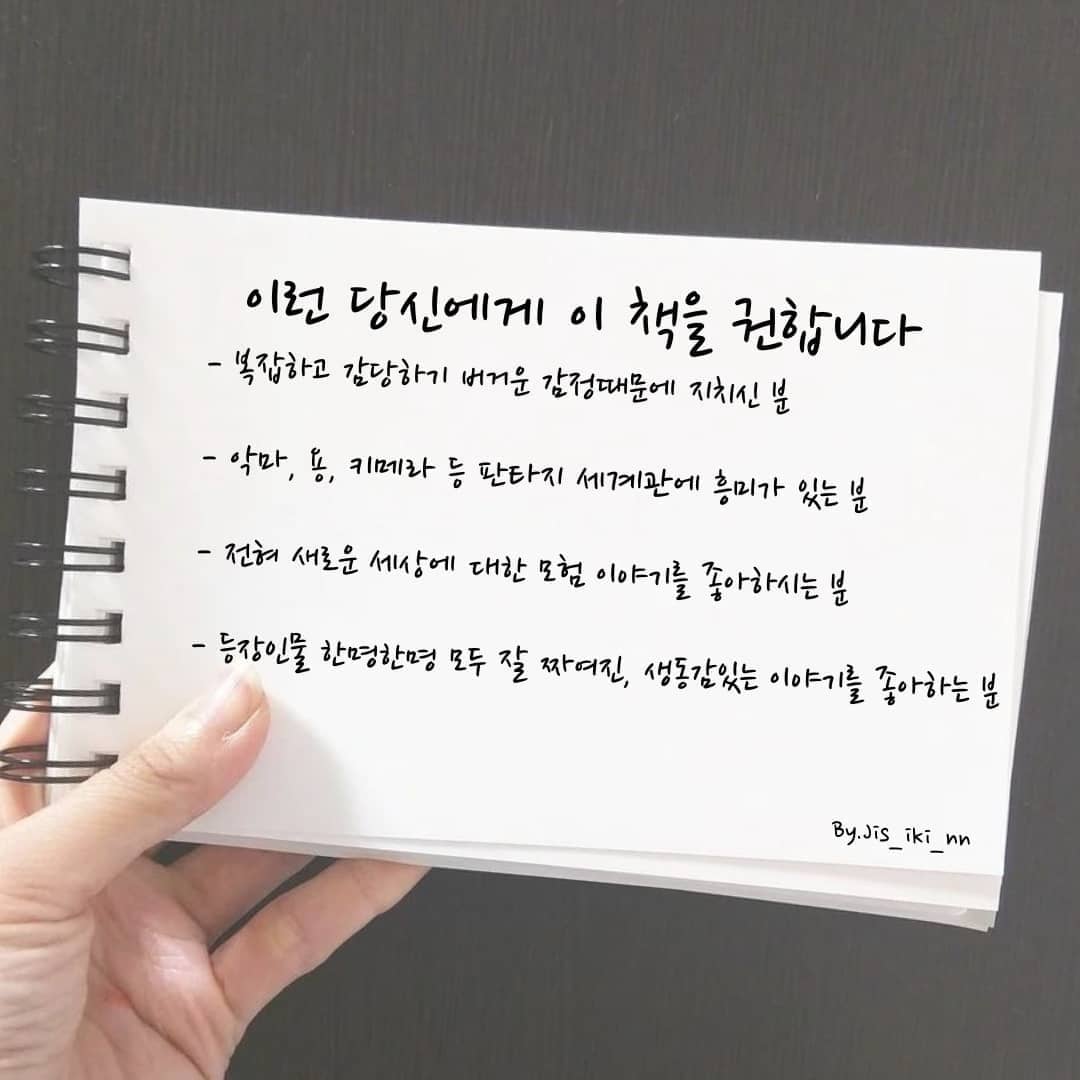 이런 당신에게 이 책을 권합니다
- 복잡하고 감당하기 버거운 감정때문에 지치신 분
- 악마, 용, 키메라 등 판타지 세계관에 흥미가 있는 분
- 전혀 새로운 세상에 대한 모험 이야기를 좋아하시는 분
- 등장인물 한명한명 모두 잘 짜여진, 생동감있는 이야기를 좋아하는 분
By.Jis_iki_nn